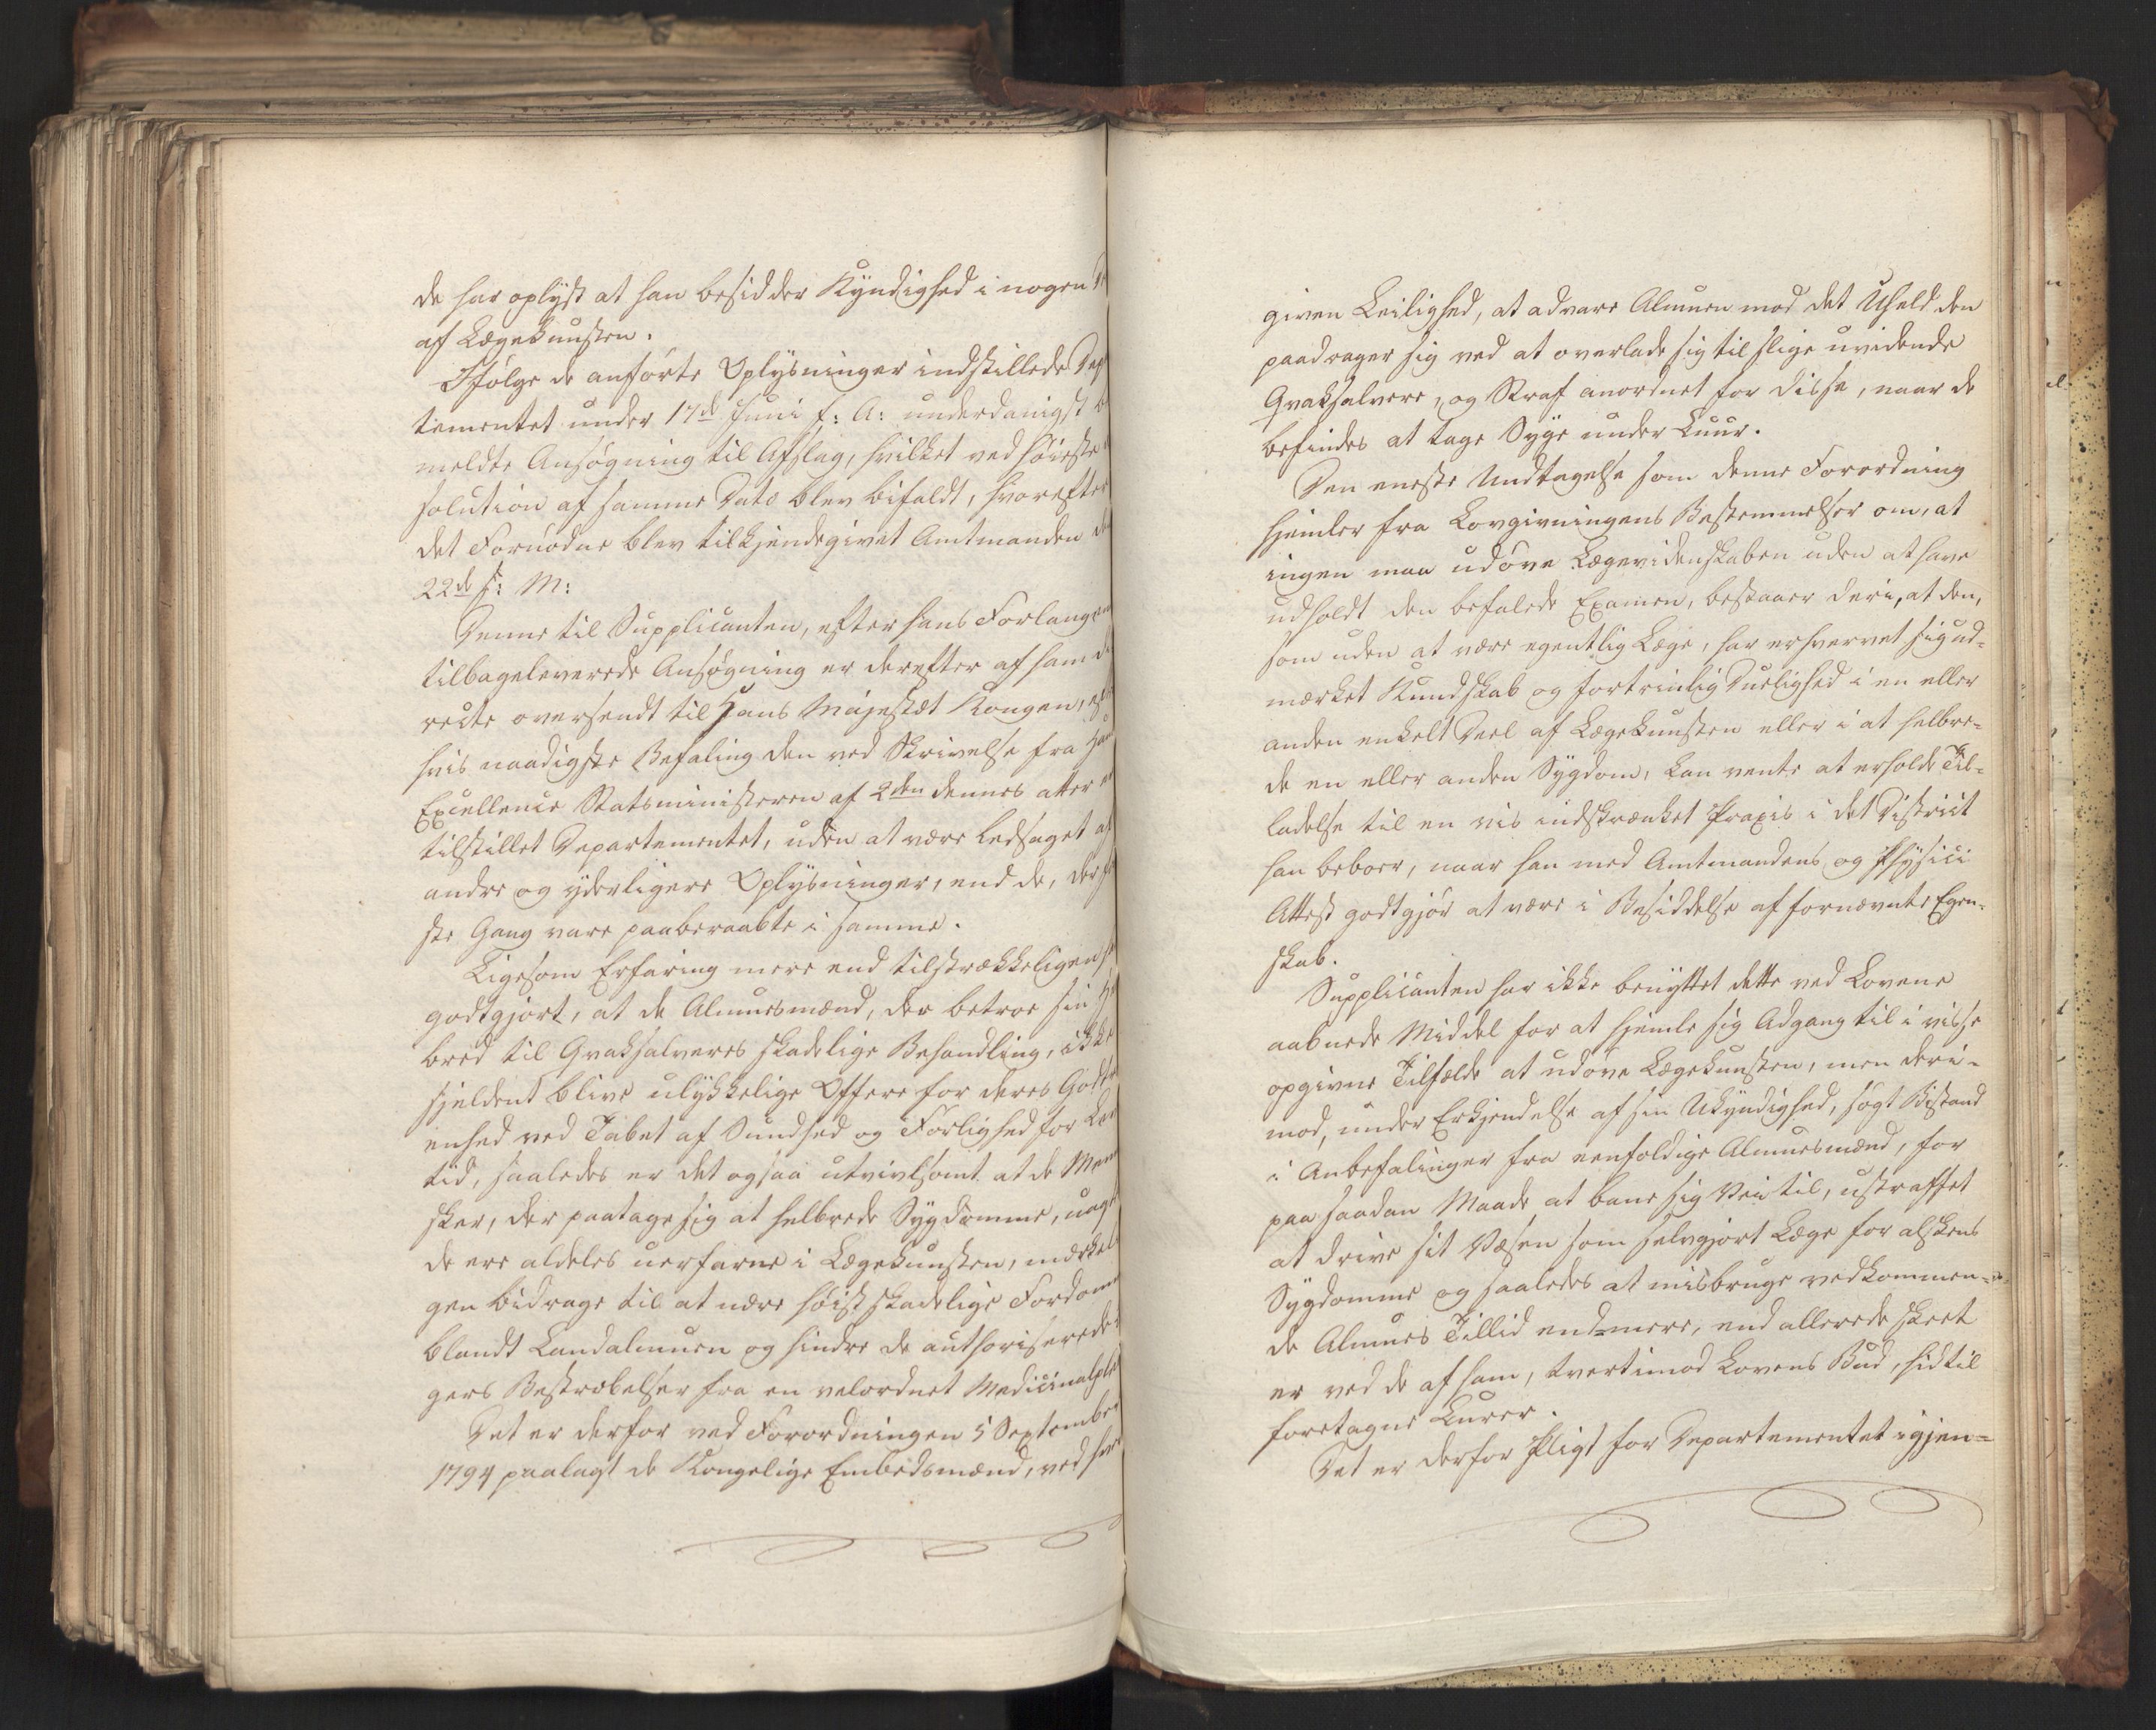 de har oplyst at han besidder Kyndighed i nogen De
af Lægekunsten.
Ifølge de anførte Oplysninger indstillede Dep
tementet under 17de Juni f: A: underdanigst be
meldte Ansøgning til Afslag, hvilket ved høieste
solution af samme Dato blev bifaldt, hvorefter
det Fornødne blev tilkjendegivet Amtmanden den
22de s: M:
Denne til Supplicanten, efter hans Forlangen
tilbageleverede Ansøgning er derefter af ham di
recte oversendt til Hans Majestæt Kongen, eft
hvis naadigste Befaling den ved Skrivelse fra Han
Excellence Statsministeren af 2den dennes atter er
tilstillet Departementet, uden at være ledsaget af
andre og yderligere Oplysninger, end de, der før
ste Gang vare paaberaabte i samme.
Ligesom Erfaring mere end tilstrækkeligen ha
godtgjort, at de Almuesmænd, der betroe sin He
bred til Qvaksalveres skadelige Behandling, ikke
sjeldent blive ulykkelige Offere for deres Godtro
enhed ved Tabet af Sundhed og Førlighed for Lev
tid, saaledes er det ogsaa utvivlsomt at de Menne
sker, der paatage sig at helbrede Sygdomme, uagt
de ere aldeles uerfarne i Lægekunsten, mærkeli
gen bidrage til at nære høist skadelige Fordomme
blandt Landalmuen og hindre de authoriserede
gers Bestræbelser fra en velordnet Medicinalpleie
Det er derfor ved Forordningen 5 September
1794 paalagt de Kongelige Embedsmænd, ved hver
given Leilighed, at advare Almuen mod det Uheld den
paadrager sig ved at overlade sig til slige uvidende
Qvaksalvere, og Straf anordnet for disse, naar de
befindes at tage Syge under Cuur.
Den eneste Undtagelse som denne Forordning
hjemler fra Lovgivningens Bestemmelser om, at
ingen maa udøve Lægevidenskaben uden at have
udholdt den befalede Examen, bestaaer deri, at den,
som uden at være egentlig Læge, har erhvervet sig ud-
mærket Kundskab og fortrinlig Duelighed i en eller
anden enkelt Deel af Lægekunsten eller i at helbre-
de en eller anden Sygdom, kan vente at erholde Til-
ladelse til en vis indskrænket Praxis i det District
han beboer, naar han med Amtmandens og Physici
Attest godtgjør at være i Besiddelse af fornævnte Egen-
skab.
Supplicanten har ikke benyttet dette ved Lovene
aabnede Middel for at hjemle sig Adgang til i visse
opgivne Tilfælde at udøve Lægekunsten, men deri-
mod, under Erkjendelse af sin Ukyndighed, søgt Bistand
i Anbefalinger fra eenfoldige Almuesmænd, for
paa saadan Maade at bane sig Vei til, ustraffet
at drive sit Væsen som selvgjort Læge for alskens
Sygdomme og saaledes at misbruge vedkommen-
de Almues Tillid end mere, end allerede skeet
er ved de af ham, tvertimod Lovens Bud, hidtil
foretagne Curer.
Det er derfor Pligt for Departementet igjen-